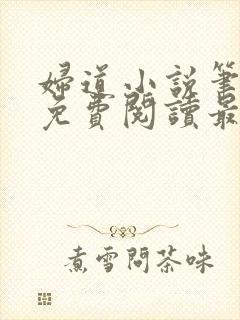 婦道小說筆
免費閱讀最
煮雪問茶味